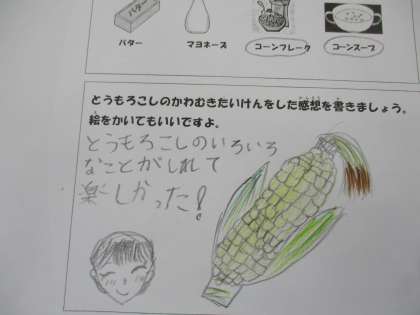 バター
バター
マヨネーズ
コーンフレーク
コーンスープ
とうもろこしのかわむきたいけんをした感想を書きましょう。
絵をかいてもいいですよ。
とうもろこしのいろいろ
なことがしれて
楽しかった!